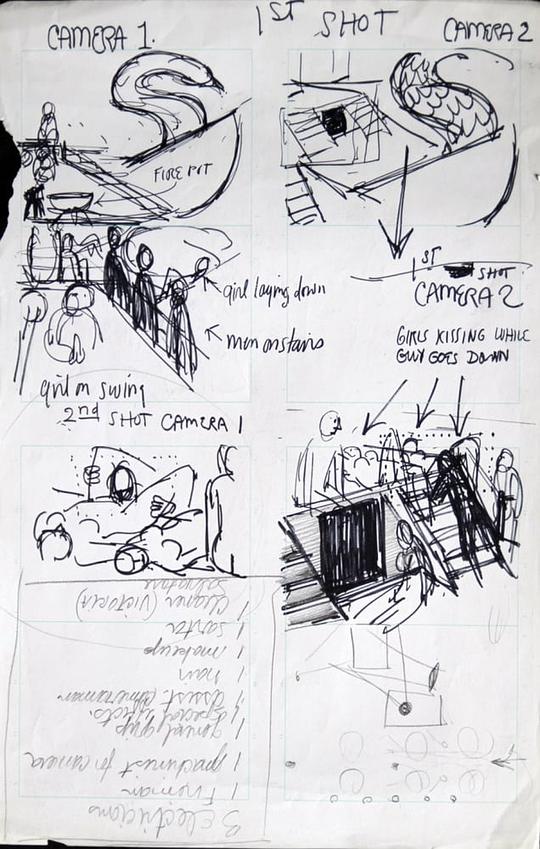 1ST SHOT
CAMERA 1.
CAMERA 2
FIRE PIT
1ST SHOT
CAMERA 2
girl laying down
men on stairs
GIRLS KISSING WHILE
GUY GOES DOWN
girl on swing
2nd SHOT CAMERA 1
3 Electricians
1 Fireman
1 machinest for camera
1 grip
1 Special effects.
1 Assist. Cameraman
1 hair
1 makeup
1
1 Cleaner (Victoria)